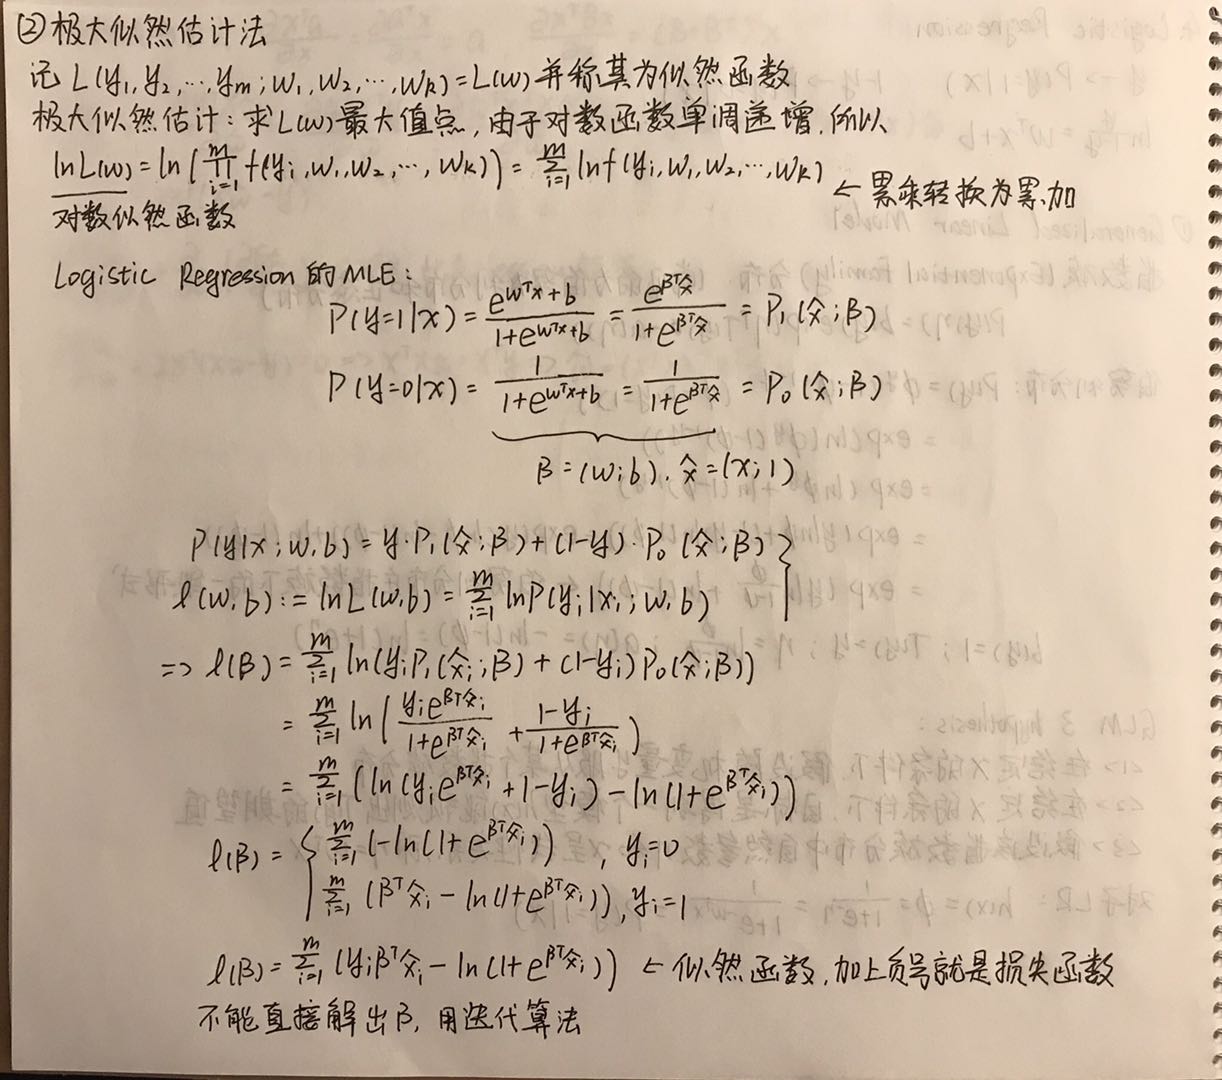 ② 极大似然估计法
记 L(y₁,y₂,…,yₘ;w₁,w₂,…,wₖ)=L(w) 并称其为似然函数
极大似然估计:求L(w)最大值点,由于对数函数单调递增,所以
lnL(w)=ln(∏ᵢ₌₁ᵐ f(yᵢ,w₁,w₂,…,wₖ))=∑ᵢ₌₁ᵐ lnf(yᵢ,w₁,w₂,…,wₖ) ← 累乘转换为累加
对数似然函数
Logistic Regression 的 MLE:
P(y=1|x) = e^(wᵀx+b) / (1+e^(wᵀx+b)) = e^(βᵀx̂) / (1+e^(βᵀx̂)) = P₁(x̂;β)
P(y=0|x) = 1 / (1+e^(wᵀx+b)) = 1 / (1+e^(βᵀx̂)) = P₀(x̂;β)
β=(w;b), x̂=(x;1)
P(y|x;w,b) = y·P₁(x̂;β)+(1-y)·P₀(x̂;β)
ℓ(w,b) := lnL(w,b) = ∑ᵢ₌₁ᵐ lnP(yᵢ|xᵢ;w,b)
=> ℓ(β) = ∑ᵢ₌₁ᵐ ln(yᵢP₁(x̂ᵢ;β)+(1-yᵢ)P₀(x̂;β))
= ∑ᵢ₌₁ᵐ ln(yᵢe^(βᵀx̂ᵢ) / (1+e^(βᵀx̂ᵢ)) + (1-yᵢ) / (1+e^(βᵀx̂ᵢ)))
= ∑ᵢ₌₁ᵐ (ln(yᵢe^(βᵀx̂ᵢ)+1-yᵢ)-ln(1+e^(βᵀx̂ᵢ)))
ℓ(β) = { ∑ᵢ₌₁ᵐ (-ln(1+e^(βᵀx̂ᵢ))) , yᵢ=0
∑ᵢ₌₁ᵐ (βᵀx̂ᵢ-ln(1+e^(βᵀx̂ᵢ))), yᵢ=1
ℓ(β) = ∑ᵢ₌₁ᵐ (yᵢβᵀx̂ᵢ-ln(1+e^(βᵀx̂ᵢ))) ← 似然函数,加上负号就是损失函数
不能直接解出β,用迭代算法